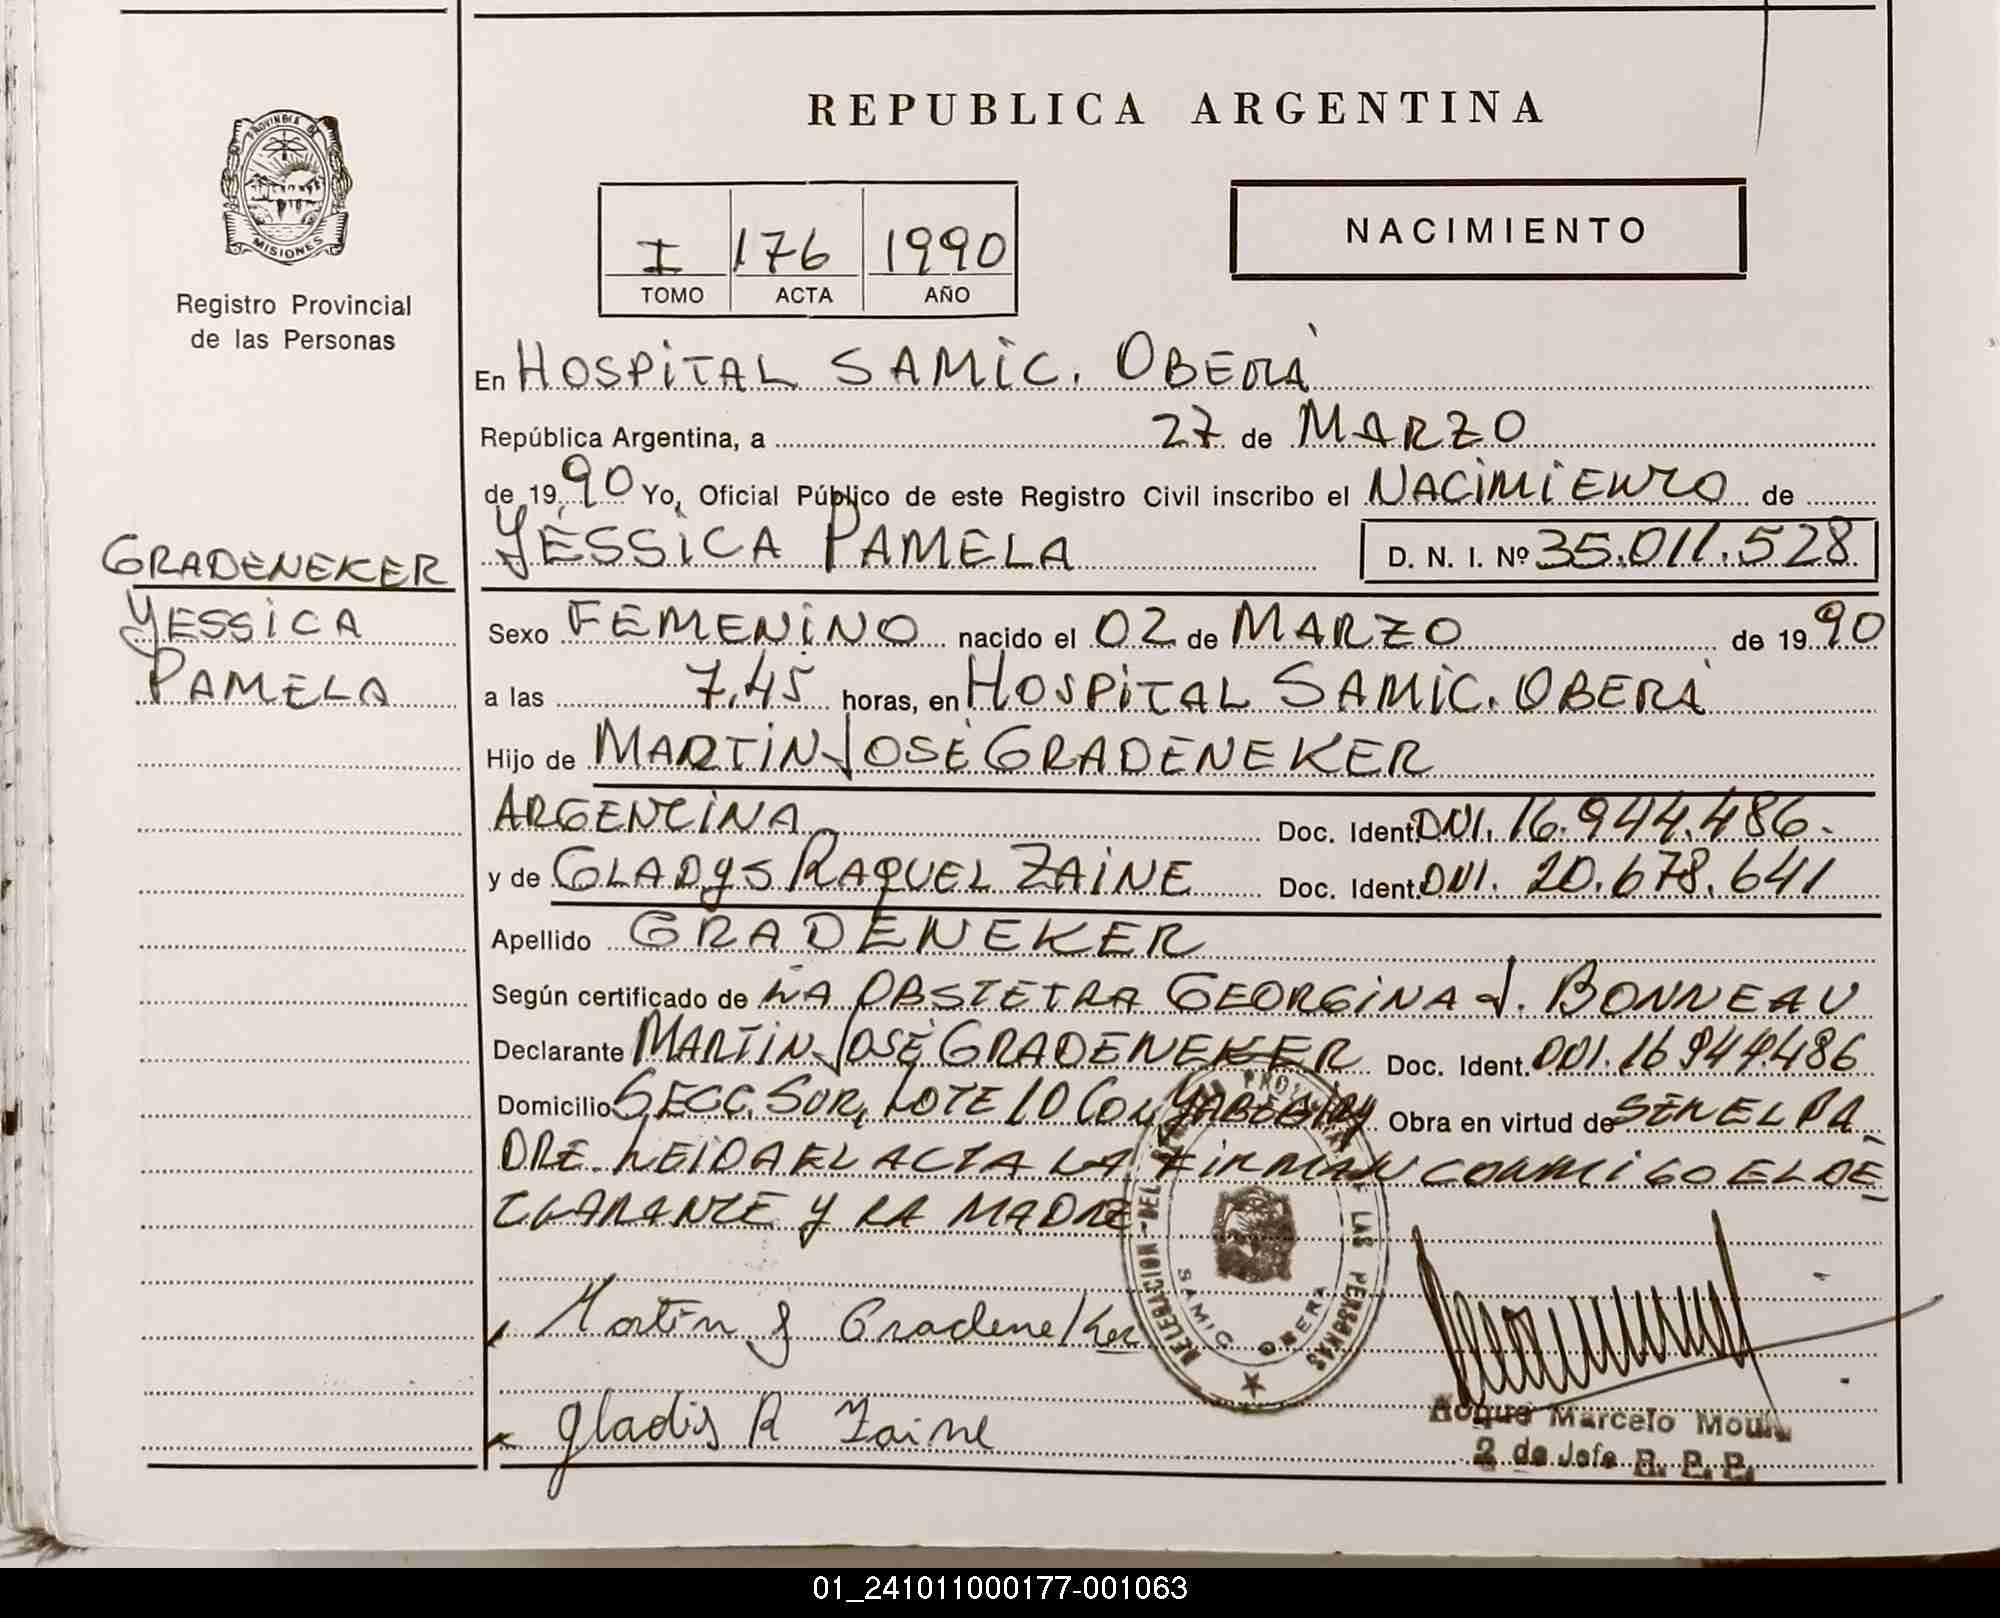 REPUBLICA ARGENTINA
PROVINCIA DE
MISIONES
Registro Provincial
de las Personas
I 176 1990
TOMO ACTA AÑO
NACIMIENTO
En HOSPITAL SAMIC. OBERÁ
República Argentina, a 27 de MARZO
de 1990 Yo, Oficial Público de este Registro Civil inscribo el NACIMIENTO de
YÉSSICA PAMELA D. N. I. Nº 35.011.528
GRADENEKER
YESSICA
PAMELA
Sexo FEMENINO nacido el 02 de MARZO de 1990
a las 7.45 horas, en HOSPITAL SAMIC. OBERÁ
Hijo de MARTIN JOSÉ GRADENEKER
ARGENTINA Doc. Ident. DNI. 16.944.486.
y de GLADYS RAQUEL ZAINE Doc. Ident. DNI. 20.678.641
Apellido GRADENEKER
Según certificado de LA OBSTETRA GEORGINA J. BONNEAU
Declarante MARTIN JOSÉ GRADENEKER Doc. Ident. DNI. 16 944.486
Domicilio SECC. SUR, LOTE 10 COL YABEBIRY Obra en virtud de SER EL PA
DRE. LEIDA EL ACTA LA FIRMAN CONMIGO EL DE
CLARANTE Y LA MADRE
Martin J Gradeneker
Gladis R Zaine
DELEGACION DEL PROVINCIAL LAS PERSONAS
SAMIC OBERA
Roque Marcelo
2 de Jefe R. P. P.
01_241011000177-001063